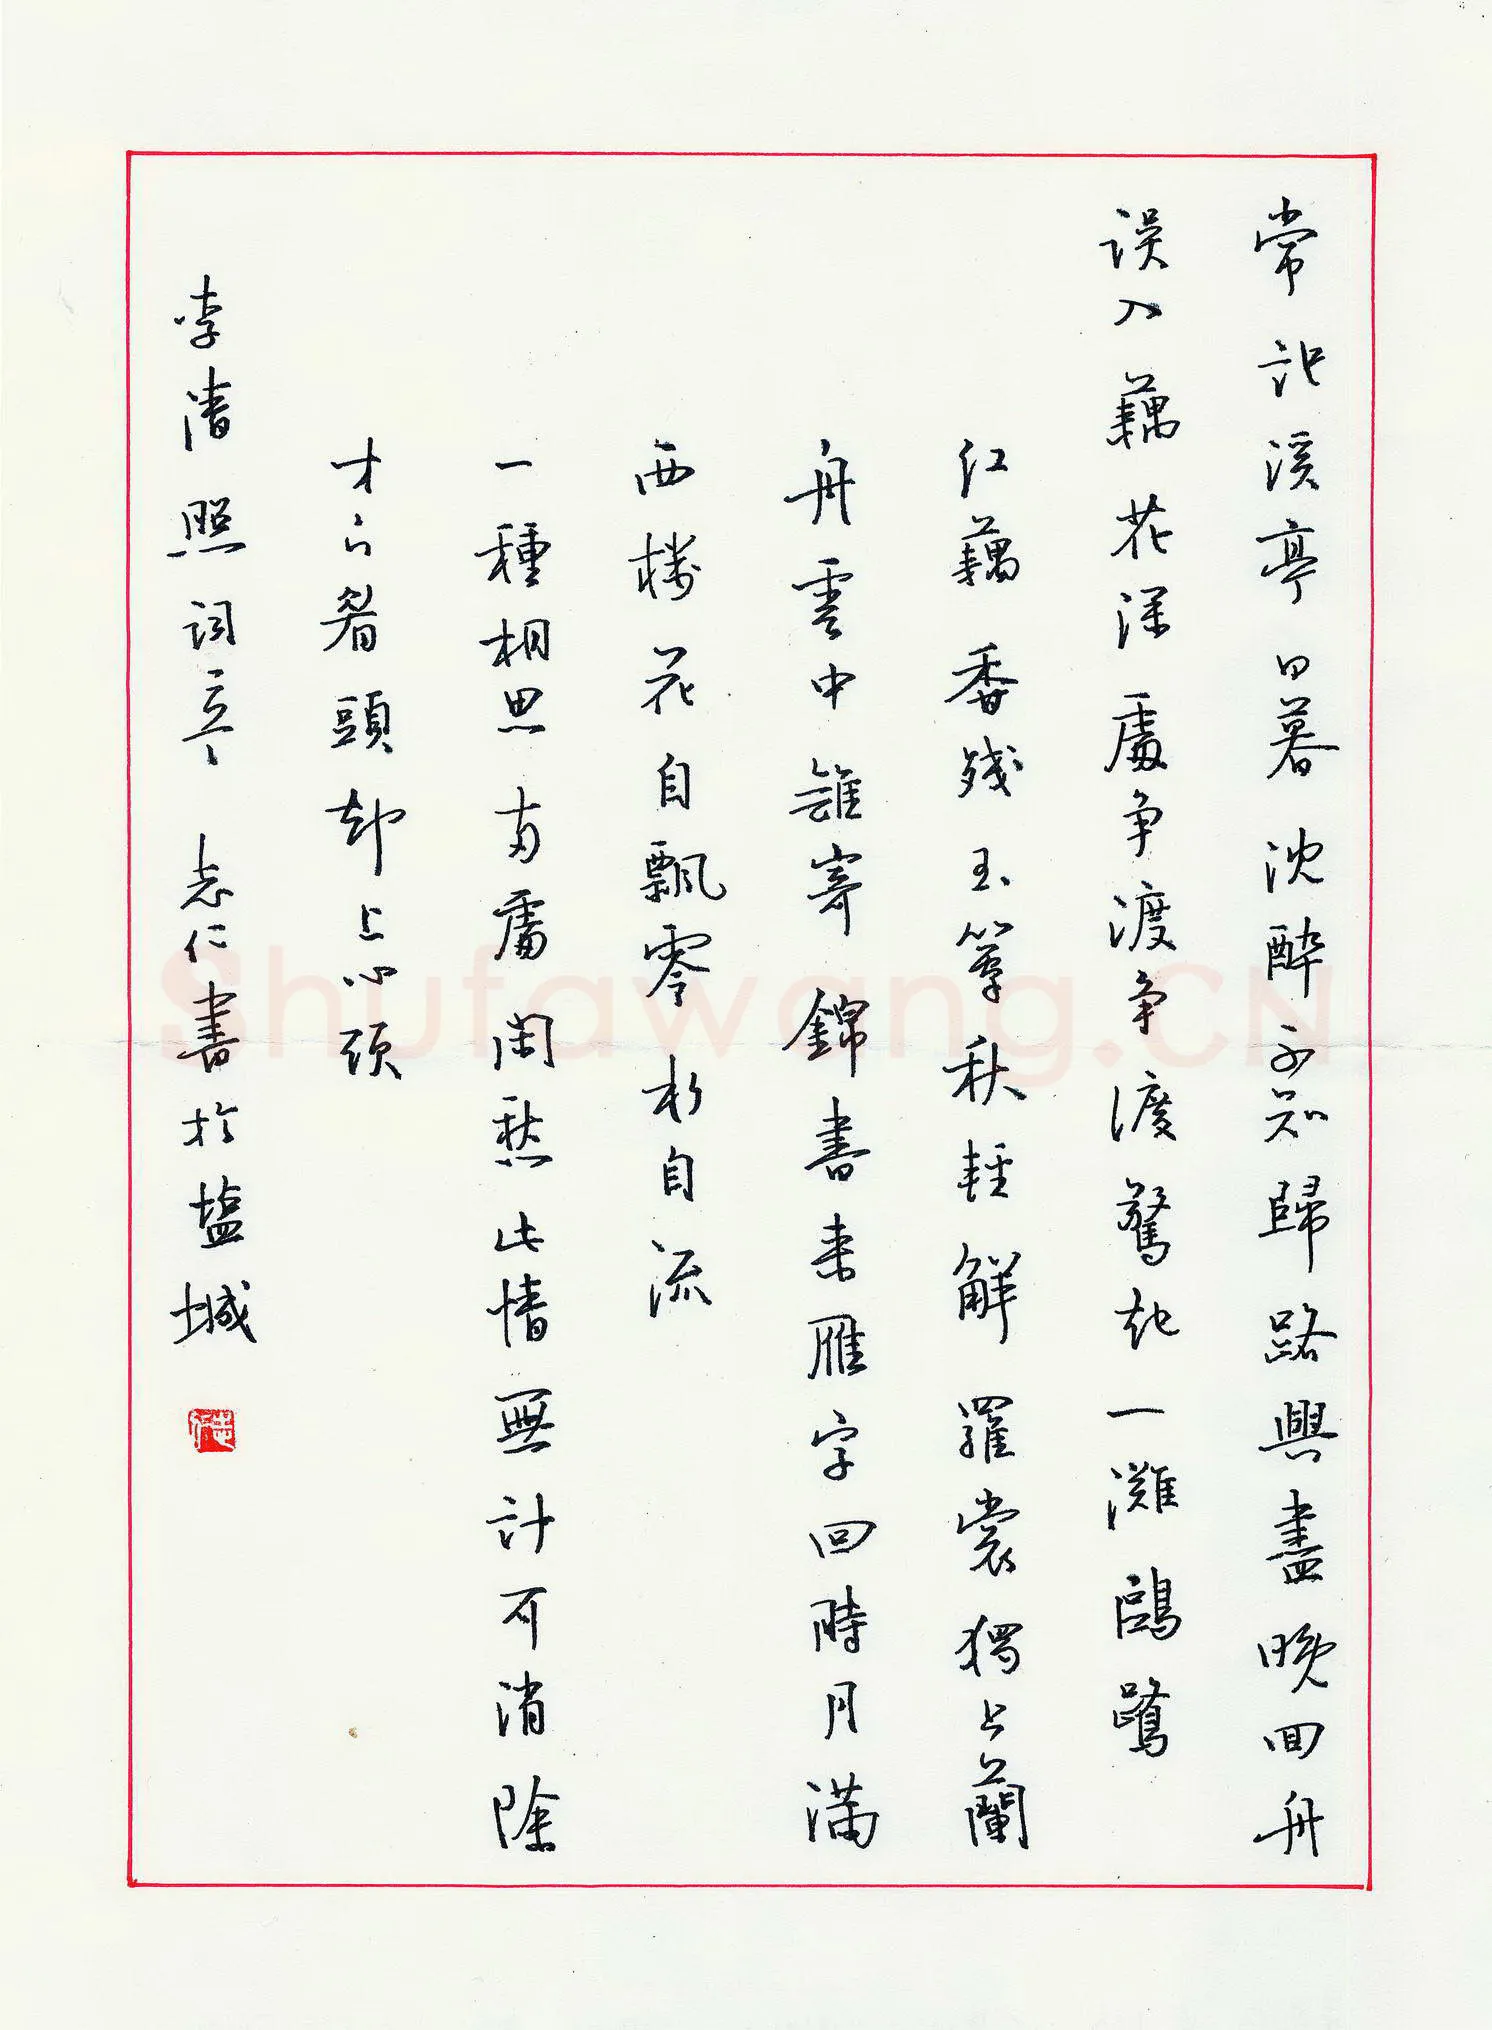 常記溪亭日暮沈醉不知歸路興盡晚回舟
误入藕花深處争渡争渡驚起一灘鷗鷺
红藕香残玉簟秋輕解羅裳獨上蘭
舟雲中誰寄錦書来雁字回時月满
西楼花自飘零水自流
一種相思两處闲愁此情無計可消除
才下眉頭却上心頭
李清照词二章 志仁書於塩城
志仁
Shufawang.CN